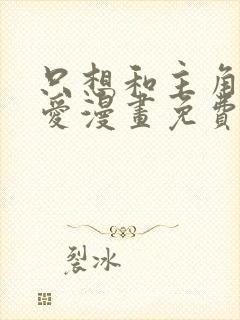 只想和主角
愛漫畫免費
裂冰